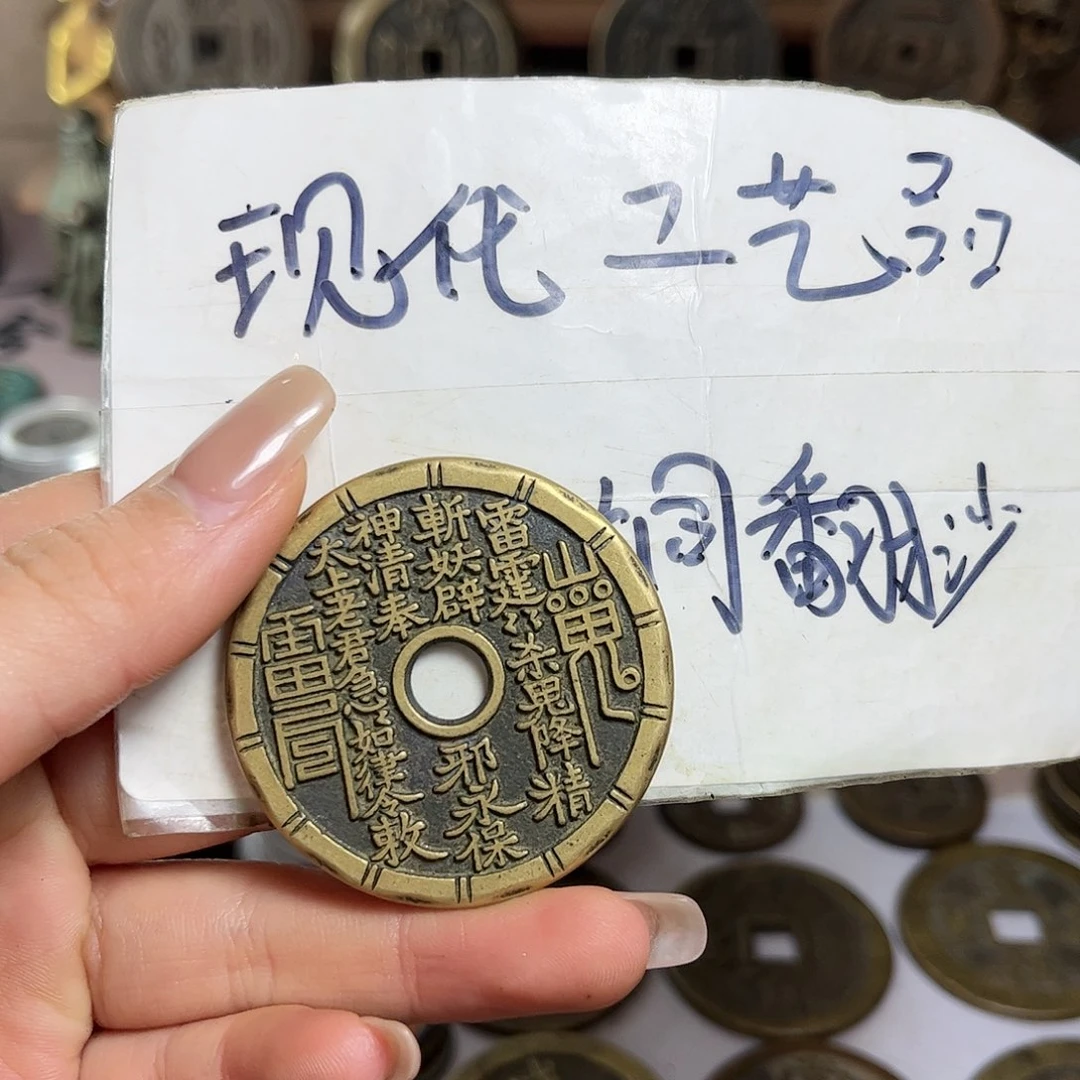 现代工艺品
铜翻沙
雷霆〻〻杀鬼降精
斬妖辟邪永保
神清奉
太上老君急〻如律令敕